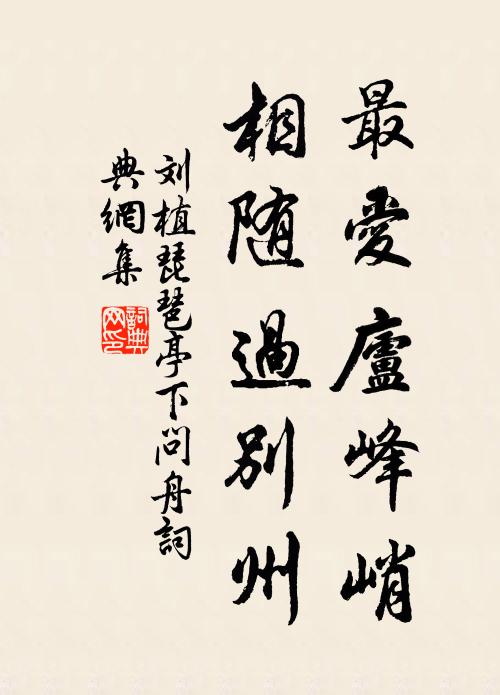 最愛廬峰峭
相随過別州
刘植琵琶亭下問舟詞
典網集
詞典网印